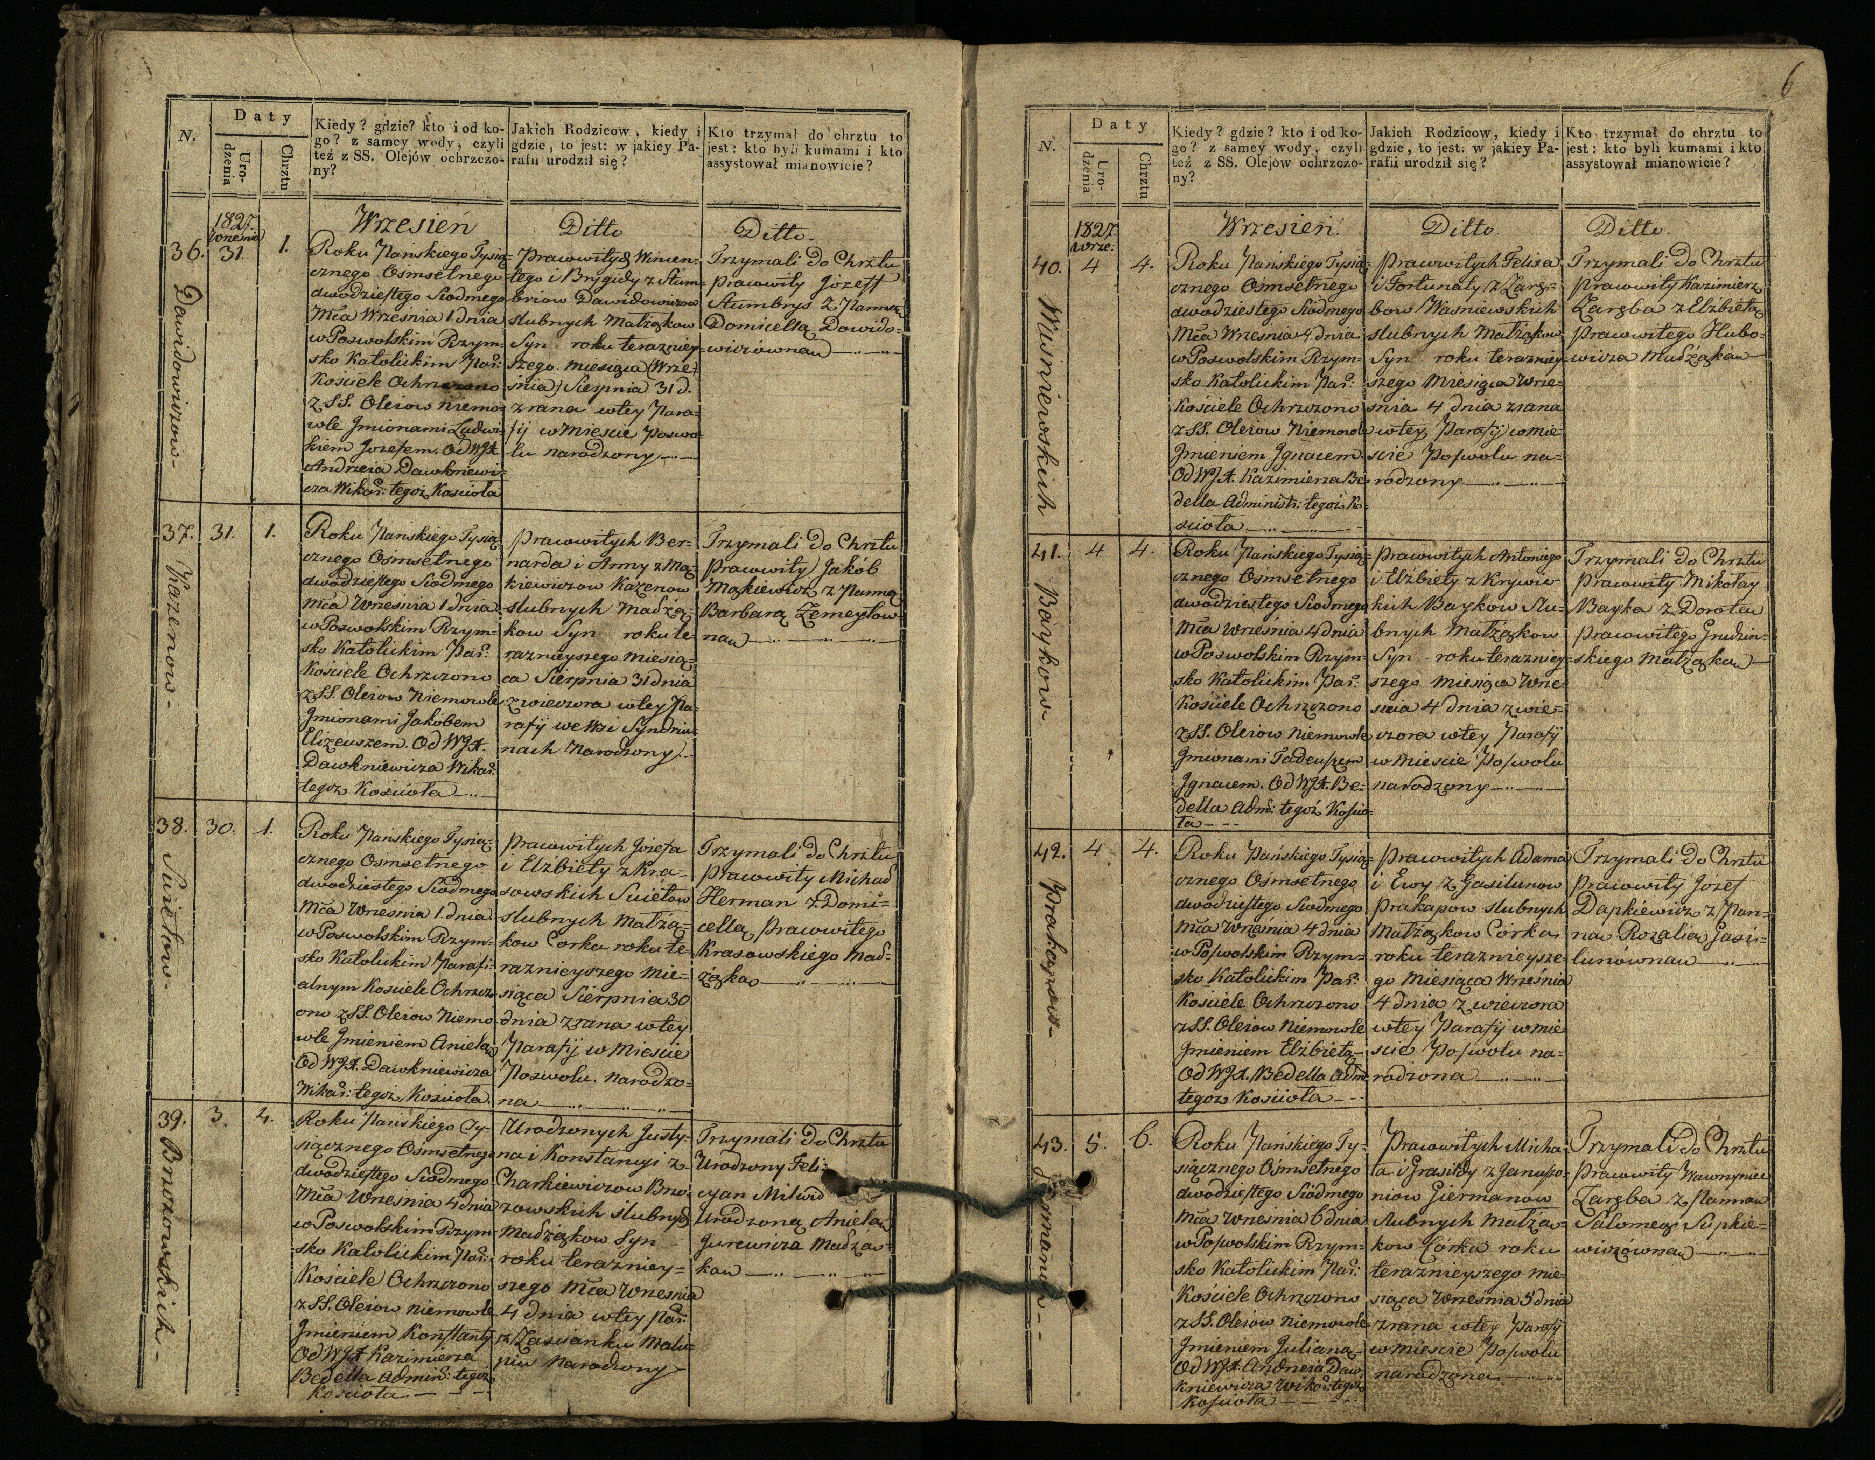 N.
Daty
Urodzenia
Chrztu
Kiedy? gdzie? kto i od ko-
go? z samey wody, czyli
też z SS. Olejów ochrzczo-
ny?
Jakich Rodzicow, kiedy i
gdzie, to jest: w jakiey Pa-
rafii urodził się?
Kto trzymał do chrztu to
jest: kto byli kumami i kto
assystował mianowicie?
1827.
Września
Wrzesień
Ditto
Ditto.
36.
31.
1.
Dawidowiczow-
Roku Pańskiego Tysią-
cznego Osmsetnego
dwódziestego Siodmego
Mca Wrzesnia 1 dnia
w Poswolskim Rzym-
sko Katolickim Par:
Kościele Ochrzczono
z SS. Oleiow Niemo-
wle Jmionami Ludwi-
kiem Jozefem. Od WJX.
Andrzeia Dawkniewi-
cza Wikar: tegoż Kościoła
Prawowitych Wincen-
tego i Brygidy z Stum-
briow Dawidowiczow
slubnych Małżąkow
Syn roku terazniey-
szego miesiąca (Wrze-
śnia) Sierpnia 31 d.
z rana w tey Para-
fij w Miescie Poswo-
lu narodzony
Trzymali do Chrztu
Prawowity Jozeff
Stumbrys z Panną
Domicellą Dowido-
wiczówną
37.
31.
1.
Kazenow-
Roku Pańskiego Tysią-
cznego Osmsetnego
dwódziestego Siodmego
Mca Wrzesnia 1 dnia
w Poswolskim Rzym-
sko Katolickim Par:
Kościele Ochrzczono
z SS Oleiow Niemowle
Jmionami Jakóbem
Elizeuszem. Od WJX.
Dawkniewicza Wikar:
tegoż Kościoła
Prawowitych Ber-
narda i Anny z Mac-
kiewiczow Kazenow
slubnych Madżą-
kow Syn roku te-
raznieyszego miesią-
ca Sierpnia 31 dnia
z wieczora w tey Pa-
rafij we Wsi Syndriu-
nach Narodzony
Trzymali do Chrztu
Prawowity Jakób
Mackiewicz z Panną
Barbarą Zemeytow-
ną
38.
30.
1.
Swietow-
Roku Pańskiego Tysią-
cznego Osmsetnego
dwódziestego Siodmego
Mca Wrzesnia 1 dnia
w Poswolskim Rzym-
sko Katolickim Parafi-
alnym Kościele Ochrzcz-
ono z SS. Oleiow Niemo-
wle Jmieniem Anielą
Od WJX. Dawkniewicza
Wikar: tegoż Kościoła
Prawowitych Jozefa
i Elżbiety z Kra-
sowskich Swietow
slubnych Małżą-
kow Corka roku te-
raznieyszego mie-
siąca Sierpnia 30
dnia z rana w tey
Parafij w Miescie
Poswolu. Narodzo-
na
Trzymali do Chrztu
Prawowity Michał
Herman z Domi-
cellą Prawowitego
Krasowskiego Mad-
żąką
39.
3.
4.
Brzozowskich-
Roku Pańskiego Ty-
siącznego Osmsetnego
dwódziestego Siodmego
Mca Wrzesnia 4 dnia
w Poswolskim Rzym-
sko Katolickim Par:
Kościele Ochrzczono
z SS. Oleiow Niemowle
Jmieniem Konstanty
Od WJX Kazimierza
Bedella Admin: tegoż
Kościoła
Urodzonych Justy-
na i Konstancyi z
Charkiewiczow Brzo-
zowskich slubnych
Madżąkow Syn
roku terazniey-
szego Mca Wrzesnia
4 dnia w tey Par:
z Zascianku Malu-
piu Narodzony
Trzymali do Chrztu
Urodzony Feli-
cyan Milwid
Urodzoną Anielą
Jurewicza Madżą-
ką
6
N.
Daty
Urodzenia
Chrztu
Kiedy? gdzie? kto i od ko-
go? z samey wody, czyli
też z SS. Olejów ochrzczo-
ny?
Jakich Rodzicow, kiedy i
gdzie, to jest: w jakiey Pa-
rafii urodził się?
Kto trzymał do chrztu to
jest: kto byli kumami i kto
assystował mianowicie?
1827
Wrze:
Wrzesień.
Ditto.
Ditto.
40.
4
4.
Wiśniewskich
Roku Pańskiego Tysią-
cznego Osmsetnego
dwódziestego Siodmego
Mca Wrzesnia 4 dnia
w Poswolskim Rzym-
sko Katolickim Par:
Kościele Ochrzczono
z SS. Oleiow Niemowle
Jmieniem Jgnacem.
Od WJX. Kazimierza Be-
della Administr: tegoż Ko-
scioła
Prawowitych Felixa
i Fortunaty z Zarę-
bow Waśniewskich
slubnych Małżąkow
Syn roku teraźniey-
szego Miesiąca Wrze-
śnia 4 dnia z rana
w tey Parafij w Mie-
scie Poswolu na-
rodzony
Trzymali do Chrztu
Prawowity Kazimierz
Zaręba z Elżbietą
Prawowitego Hubo-
wicza Madżąką
41.
4
4.
Baykow-
Roku Pańskiego Tysią-
cznego Osmsetnego
dwódziestego Siodmego
Mca Września 4 dnia
w Poswolskim Rzym-
sko Katolickim Par:
Kościele Ochrzczono
z SS. Oleiow Niemowle
Jmionami Tadeuszem
Jgnacem. Od WJX. Be-
della Adm: tegoż Kościo-
ła
Prawowitych Antoniego
i Elżbiety z Krywic-
kich Baykow Slu-
bnych Małżąkow
Syn roku teraźniey-
szego Miesiąca Wrze-
snia 4 dnia z wie-
czora w tey Parafij
w Miescie Poswolu
narodzony
Trzymali do Chrztu
Prawowity Mikołay
Bayka z Dorotą
Prawowitego Grudzin-
skiego Małżąką
42.
4
4.
Prakapow-
Roku Pańskiego Tysią-
cznego Osmsetnego
dwódziestego Siodmego
Mca Września 4 dnia
w Poswolskim Rzym-
sko Katolickim Par:
Kościele Ochrzczono
z SS. Oleiow Niemowle
Jmieniem Elżbietą
Od WJX. Bedella Adm
tegoż Kościoła
Prawowitych Adama
i Ewy z Jasilunow
Prakapow slubnych
Małżąkow Córka
roku teraźnieysze-
go Miesiąca Września
4 dnia z wieczora
w tey Parafij w Mie-
scie Poswolu na-
rodzona
Trzymali do Chrztu
Prawowity Józef
Dapkiewicz z Pan-
ną Rozalią Jasi-
lunowną
43.
5.
6.
Giermanow
Roku Pańskiego Ty-
siącznego Osmsetnego
dwódziestego Siodmego
Mca Wrzesnia 6 dnia
w Poswolskim Rzym-
sko Katolickim Par:
Kościele Ochrzczono
z SS. Oleiow Niemowle
Jmieniem Julianą
Od WJX. Andrzeia Daw-
kniewicza Wikar: tegoż
Kościoła
Prawowitych Micha-
ła i Grasildy z Januszo-
niow Giermanow
slubnych Małżą-
kow Córka roku
teraznieyszego Mie-
siąca Wrzesnia 5 dnia
z rana w tey Parafij
w Miescie Poswolu
narodzona
Trzymali do Chrztu
Prawowity Wawrzyniec
Zaręba z Panną
Salomeą Supkie-
wiczówną